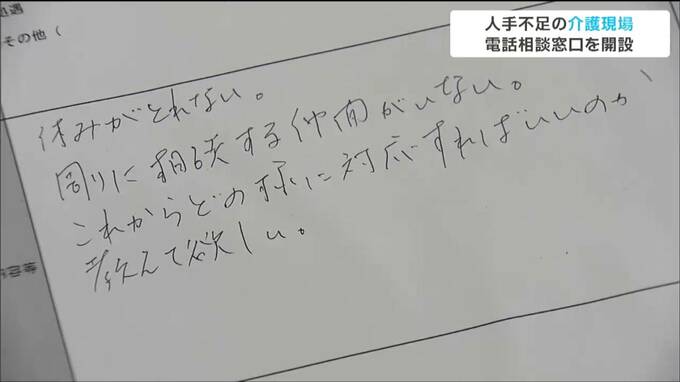 人手不足の介護現場
電話相談窓口を開設
その他（
休みがとれない。
周りに相談する仲間がいない。
これからどの様に対応すればいいのか
教えて欲しい。